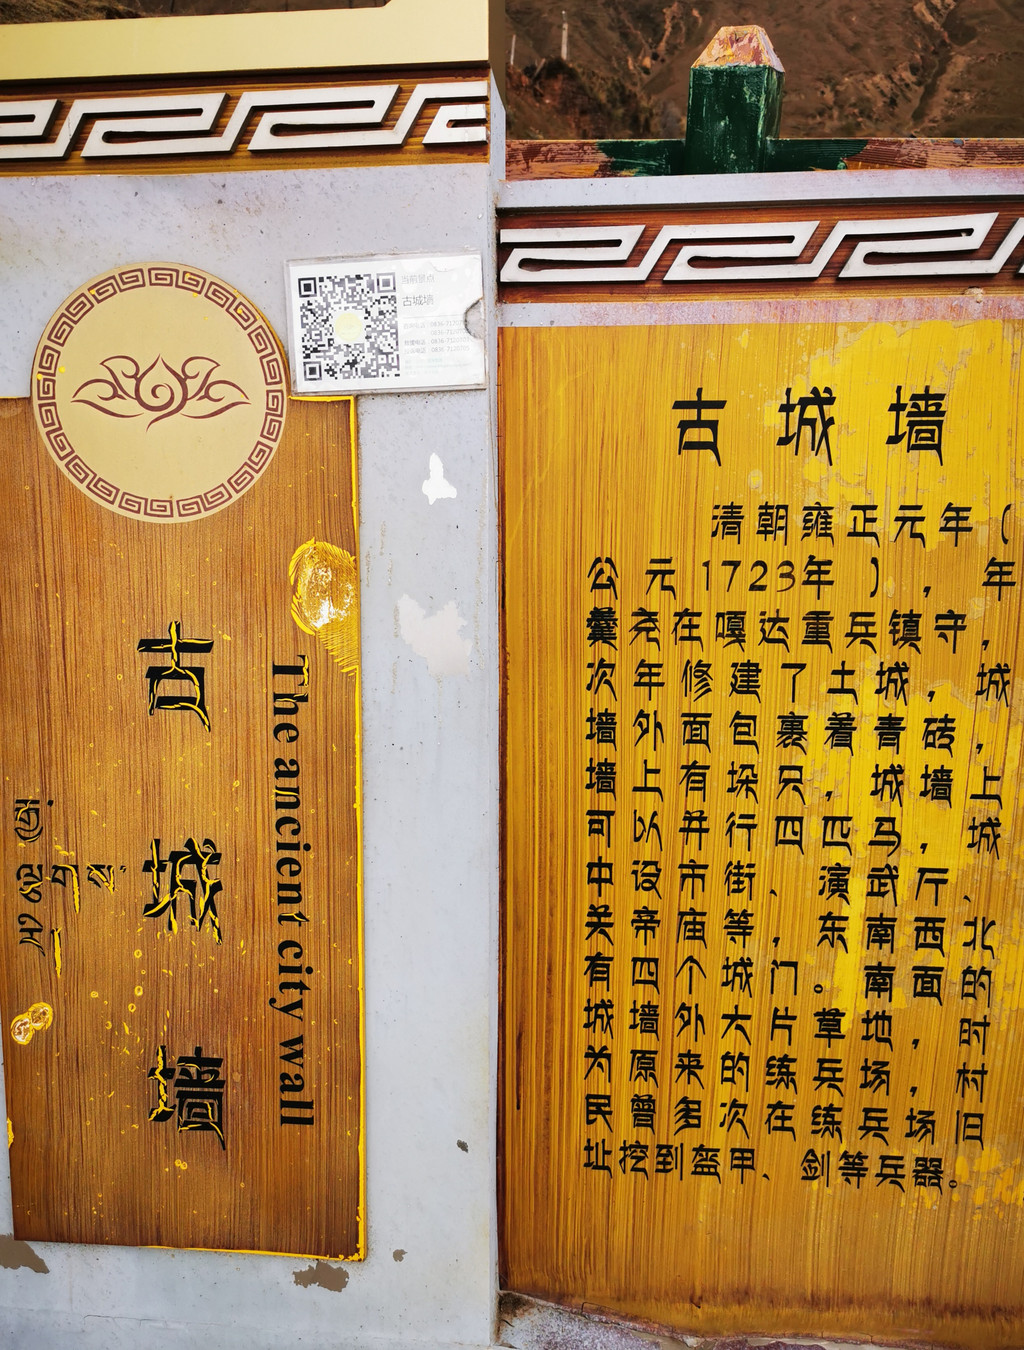 古城墙
The ancient city wall
当前景点
古城墙
古城墙
清朝雍正元年(
公元1723年),年
羹尧在嘎达重兵镇守,
次年修建了土城,城
墙外面包裹着青砖,
墙上有垛只,城墙上
可以并行四匹马,城
中设市街、演武厅、
关帝庙等,东南西北
有四个城门。南面的
城墙外大片草地,时
为原来的练兵场,村
民曾多次在练兵场旧
址挖到盔甲、剑等兵器。